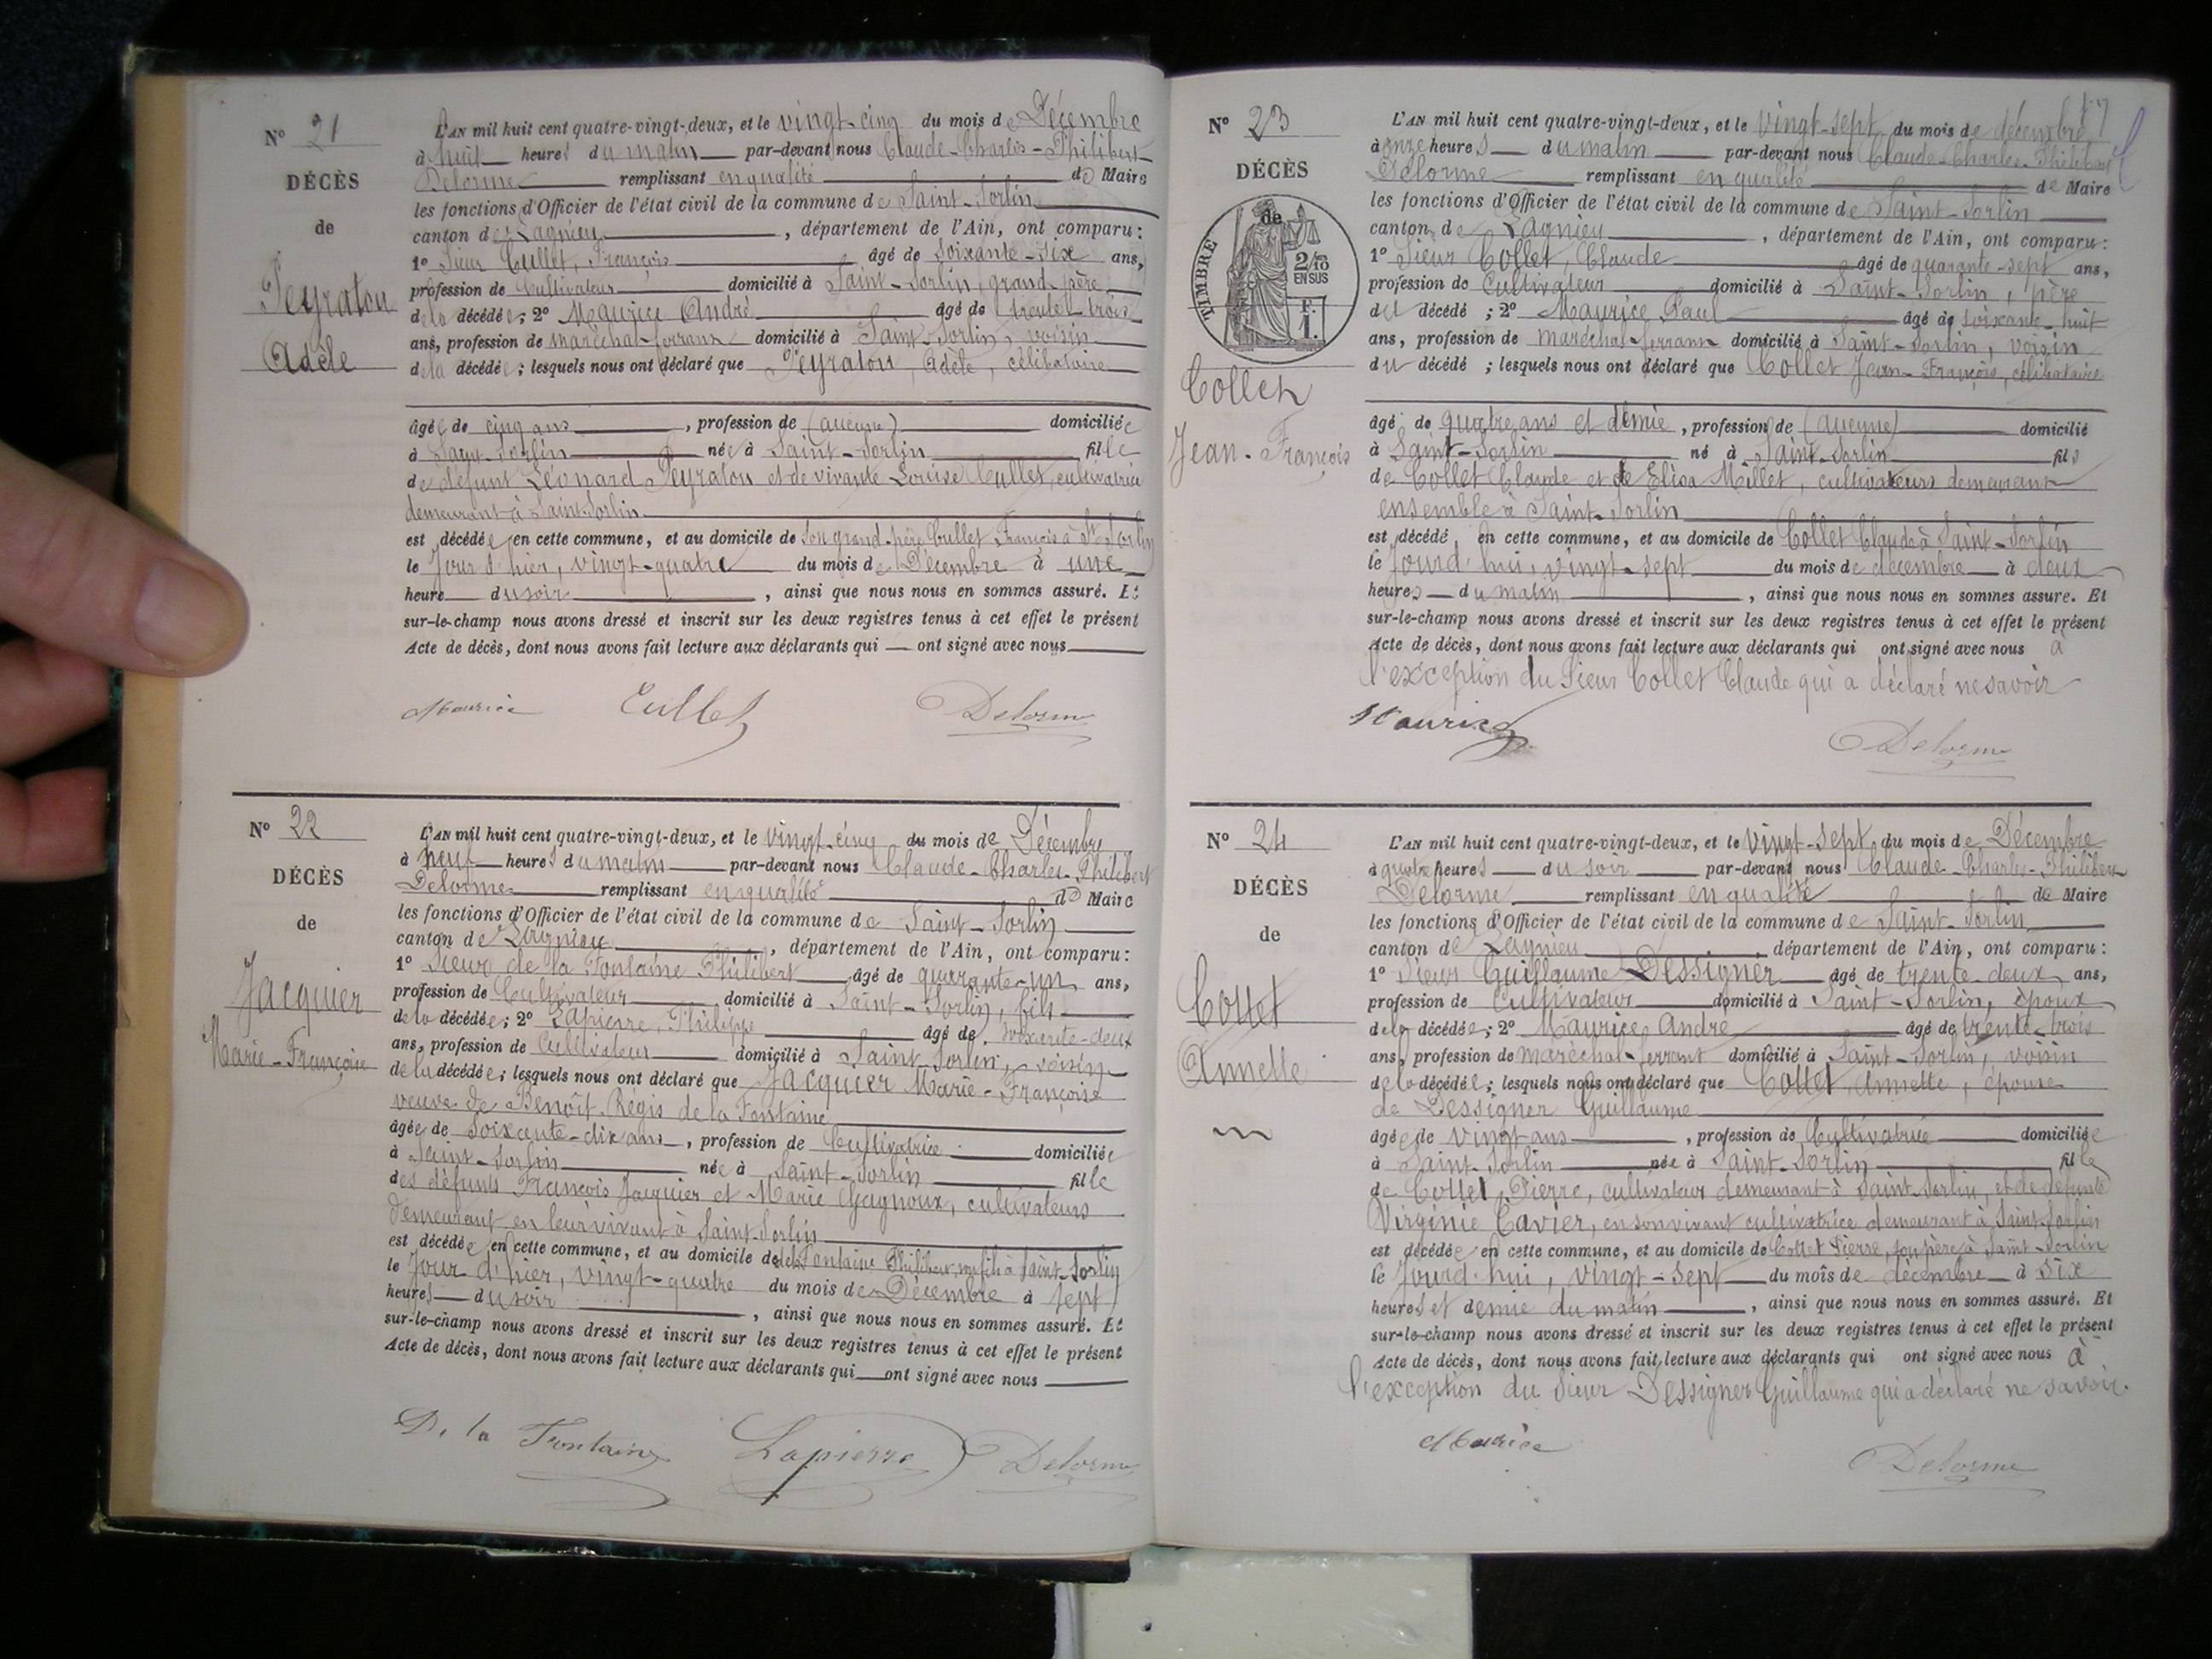 N° 21
DÉCÈS
de
Peyraton
Adèle
L'AN mil huit cent quatre-vingt-deux, et le vingt-cinq du mois de Décembre
à huit heures du matin par-devant nous Claude-Charles-Philibert
Delorme remplissant en qualité de Maire
les fonctions d'Officier de l'état civil de la commune de Saint-Sorlin
canton de Lagnieu, département de l'Ain, ont comparu:
1° Sieur Cullet, François âgé de soixante-six ans,
profession de Cultivateur domicilié à Saint-Sorlin, grand-père
de la décédée; 2° Maurice André âgé de trente trois
ans, profession de maréchal-ferrant domicilié à Saint-Sorlin, voisin
de la décédée; lesquels nous ont déclaré que Peyraton, Adèle, célibataire
âgée de cinq ans, profession de (aucune) domiciliée
à Saint-Sorlin née à Saint-Sorlin fille
de défunt Léonard Peyraton et de vivante Louise Cullet, cultivatrice
demeurant à Saint-Sorlin
est décédée en cette commune, et au domicile de son grand-père Cullet François à St Sorlin
le jour d'hier, vingt-quatre du mois de Décembre à une
heure du soir, ainsi que nous nous en sommes assuré. Et
sur-le-champ nous avons dressé et inscrit sur les deux registres tenus à cet effet le présent
Acte de décès, dont nous avons fait lecture aux déclarants qui ont signé avec nous
Maurice Cullet Delorme
N° 22
DÉCÈS
de
Jacquier
Marie-Françoise
L'AN mil huit cent quatre-vingt-deux, et le vingt-cinq du mois de Décembre
à neuf heures du matin par-devant nous Claude-Charles-Philibert
Delorme remplissant en qualité de Maire
les fonctions d'Officier de l'état civil de la commune de Saint-Sorlin
canton de Lagnieu, département de l'Ain, ont comparu:
1° Sieur de la Fontaine Philibert âgé de quarante-un ans,
profession de Cultivateur domicilié à Saint-Sorlin, fils
de la décédée; 2° Lapierre, Philippe âgé de soixante-deux
ans, profession de Cultivateur domicilié à Saint-Sorlin, voisin
de la décédée; lesquels nous ont déclaré que Jacquier Marie-Françoise
veuve de Benoît-Régis de la Fontaine
âgée de soixante-dix ans, profession de Cultivatrice domiciliée
à Saint-Sorlin née à Saint-Sorlin fille
des défunts François Jacquier et Marie Gagnoux, cultivateurs
demeurant en leur vivant à Saint-Sorlin
est décédée en cette commune, et au domicile de de la Fontaine Philibert, son fils à Saint-Sorlin
le jour d'hier, vingt-quatre du mois de Décembre à sept
heures du soir, ainsi que nous nous en sommes assuré. Et
sur-le-champ nous avons dressé et inscrit sur les deux registres tenus à cet effet le présent
Acte de décès, dont nous avons fait lecture aux déclarants qui ont signé avec nous
D. la Fontaine Lapierre Delorme
17
N° 23
DÉCÈS
de
TIMBRE
2/10
EN SUS
F.
1.
Collet
Jean-François
L'AN mil huit cent quatre-vingt-deux, et le vingt-sept du mois de décembre
à onze heures du matin par-devant nous Claude-Charles-Philibert
Delorme remplissant en qualité de Maire
les fonctions d'Officier de l'état civil de la commune de Saint-Sorlin
canton de Lagnieu, département de l'Ain, ont comparu:
1° Sieur Collet, Claude âgé de quarante-sept ans,
profession de Cultivateur domicilié à Saint-Sorlin, père
du décédé; 2° Maurice Paul âgé de soixante-huit
ans, profession de maréchal-ferrant domicilié à Saint-Sorlin, voisin
du décédé; lesquels nous ont déclaré que Collet Jean-François, célibataire
âgé de quatre ans et demie, profession de (aucune) domicilié
à Saint-Sorlin né à Saint-Sorlin fils
de Collet Claude et de Elisa Millet, cultivateurs demeurant
ensemble à Saint-Sorlin
est décédé en cette commune, et au domicile de Collet Claude à Saint-Sorlin
le Jourd'hui, vingt-sept du mois de décembre à deux
heures du matin, ainsi que nous nous en sommes assuré. Et
sur-le-champ nous avons dressé et inscrit sur les deux registres tenus à cet effet le présent
Acte de décès, dont nous avons fait lecture aux déclarants qui ont signé avec nous à
l'exception du Sieur Collet Claude qui a déclaré ne savoir
Maurice Delorme
N° 24
DÉCÈS
de
Collet
Annette
L'AN mil huit cent quatre-vingt-deux, et le vingt-sept du mois de Décembre
à quatre heures du soir par-devant nous Claude-Charles-Philibert
Delorme remplissant en qualité de Maire
les fonctions d'Officier de l'état civil de la commune de Saint-Sorlin
canton de Lagnieu, département de l'Ain, ont comparu:
1° Sieur Guillaume Dessigner âgé de trente-deux ans,
profession de Cultivateur domicilié à Saint-Sorlin, époux
de la décédée; 2° Maurice André âgé de trente-trois
ans, profession de maréchal-ferrant domicilié à Saint-Sorlin, voisin
de la décédée; lesquels nous ont déclaré que Collet, Annette, épouse
de Dessigner Guillaume
âgée de vingt ans, profession de Cultivatrice domiciliée
à Saint-Sorlin née à Saint-Sorlin fille
de Collet, Pierre, cultivateur demeurant à Saint-Sorlin, et de défunte
Virginie Cavier, en son vivant cultivatrice demeurant à Saint-Sorlin
est décédée en cette commune, et au domicile de Collet Pierre, son père à Saint-Sorlin
le Jourd'hui, vingt-sept du mois de décembre à six
heures et demie du matin, ainsi que nous nous en sommes assuré. Et
sur-le-champ nous avons dressé et inscrit sur les deux registres tenus à cet effet le présent
Acte de décès, dont nous avons fait lecture aux déclarants qui ont signé avec nous à
l'exception du Sieur Dessigner Guillaume qui a déclaré ne savoir.
Maurice Delorme